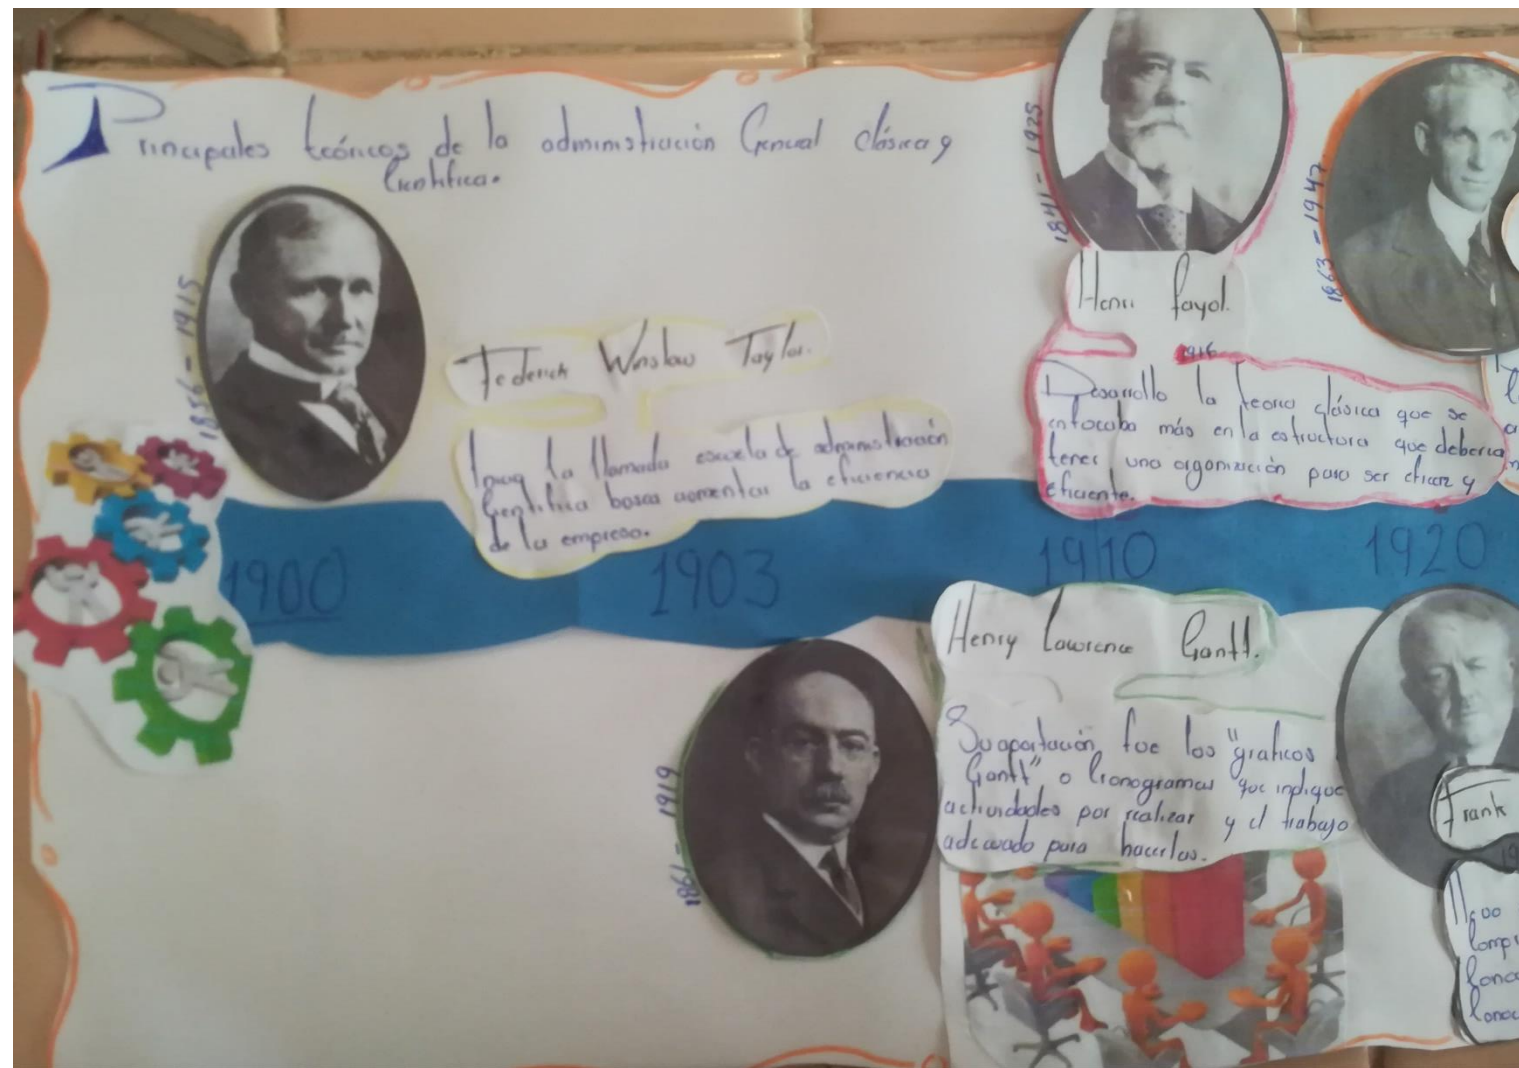 Principales teóricos de la administración General clásica y
Científica.
1856 - 1915
Federick Winslow Taylor.
la llamada escuela de administración
Científica busca aumentar la eficiencia
de la empresa.
1841 - 1925
Henri fayol.
1916
Desarrollo la teoria clásica que se
enfocaba más en la estructura que deberia
tener una organización para ser eficaz y
eficiente.
1863 - 1947
1900
1903
1910
1920
1861 - 1919
Henry Lawrence Gantt.
Su aportación fue los "graficos
Gantt" o Cronogramas que indique
actividades por realizar y el trabajo
adecuado para hacerlas.
Frank